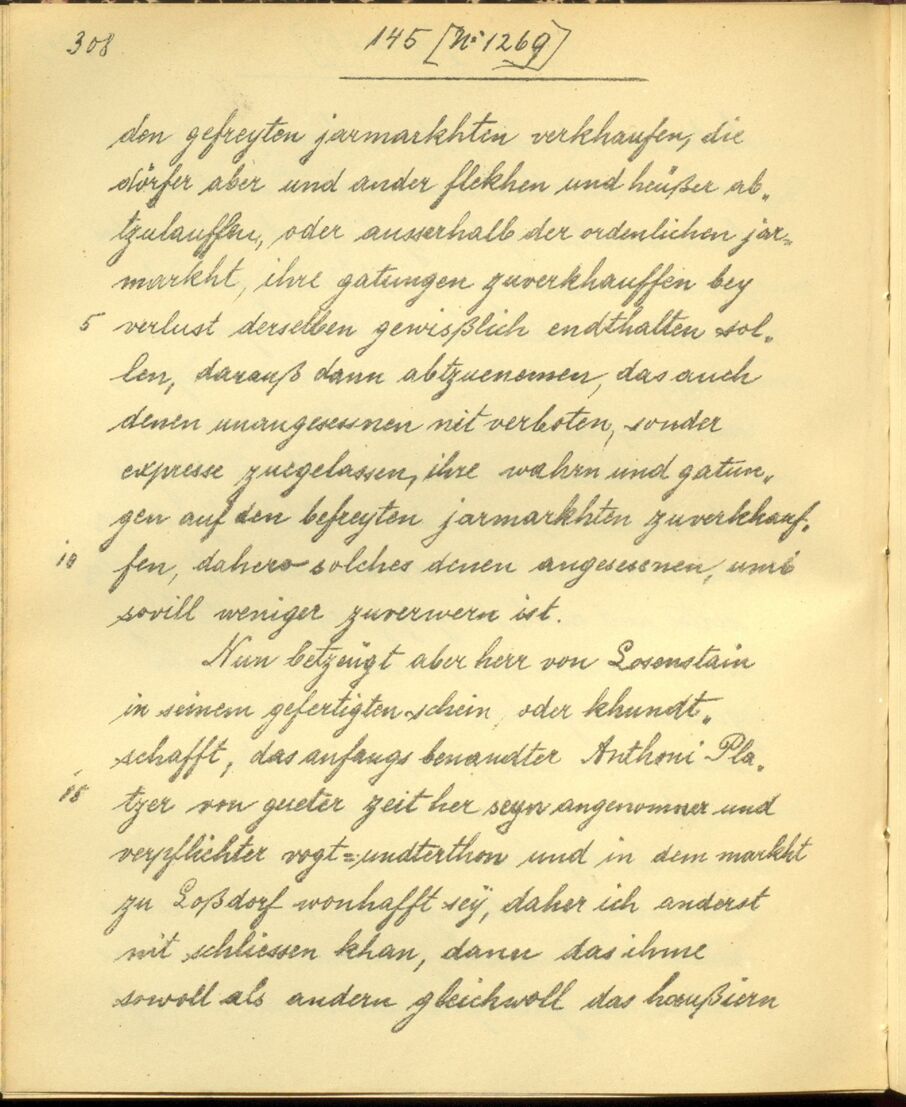 308 145 [No 1269]
den gefreyten jarmarkhten verkhaufen, die
dörfer aber und ander flekhen und heüßer ab„
tzulauffen, oder ausserhalb der ordenlichen jar„
markht, ihre gatungen zuverkhauffen bey
5 verlust derselben gewißlich endthalten sol„
len, darauß dann abtzuenemen, das auch
denen unangesessnen nit verboten, sonder
expresse zuegelassen, ihre wahrn und gatun„
gen auf den befreyten jarmarkhten zuverkhauf„
10 fen, dahero solches denen angesessenen, umb
sovill weniger zuverwern ist.
Nun betzeügt aber herr von Losenstain
in seinem gefertigten schein, oder khundt„
schafft, das anfangs benandter Anthoni Pla„
15 tzer von gueter zeit her seyn angenomner und
verpflichter vogt=undterthon und in dem markht
zu Loßdorf wonhafft seÿ, daher ich anderst
nit schliessen khan, dann das ihme
sowoll als andern gleichwoll das haußiern